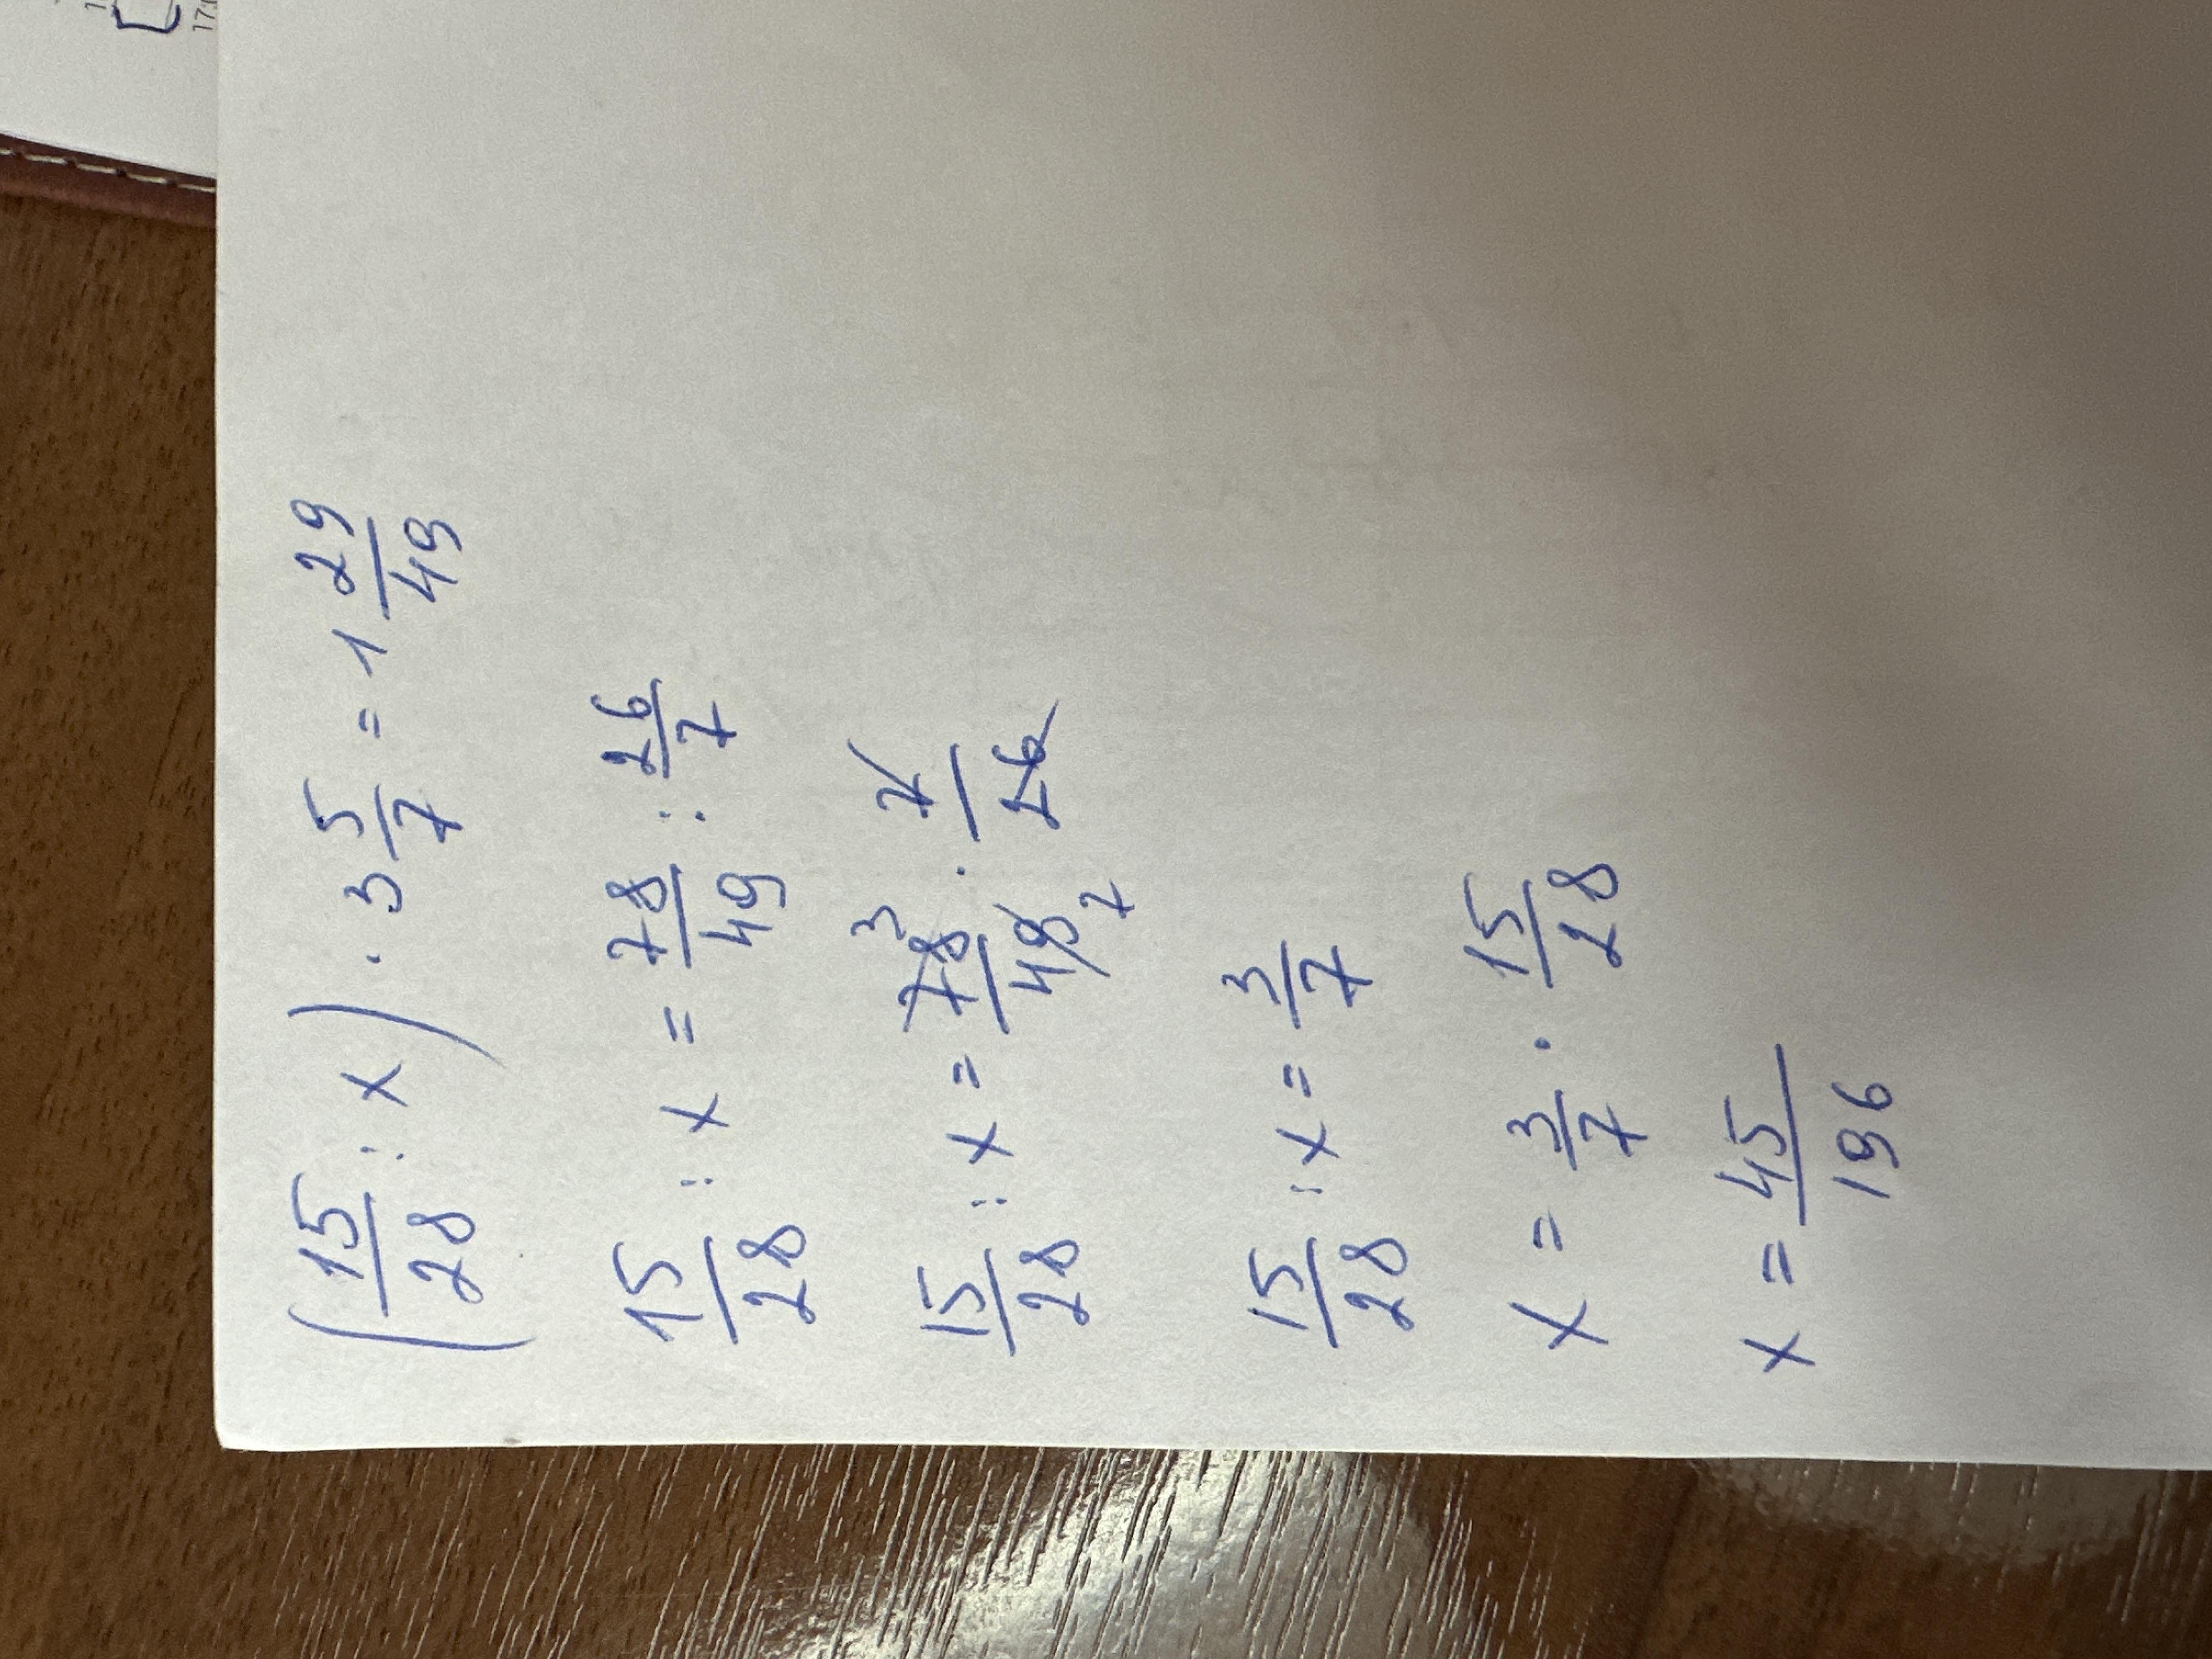 (15/28 : x) · 3 5/7 = 1 29/49
15/28 : x = 78/49 : 26/7
15/28 : x = 78/49 · 7/26 3 7
15/28 : x = 3/7
x = 3/7 · 15/28
x = 45/196